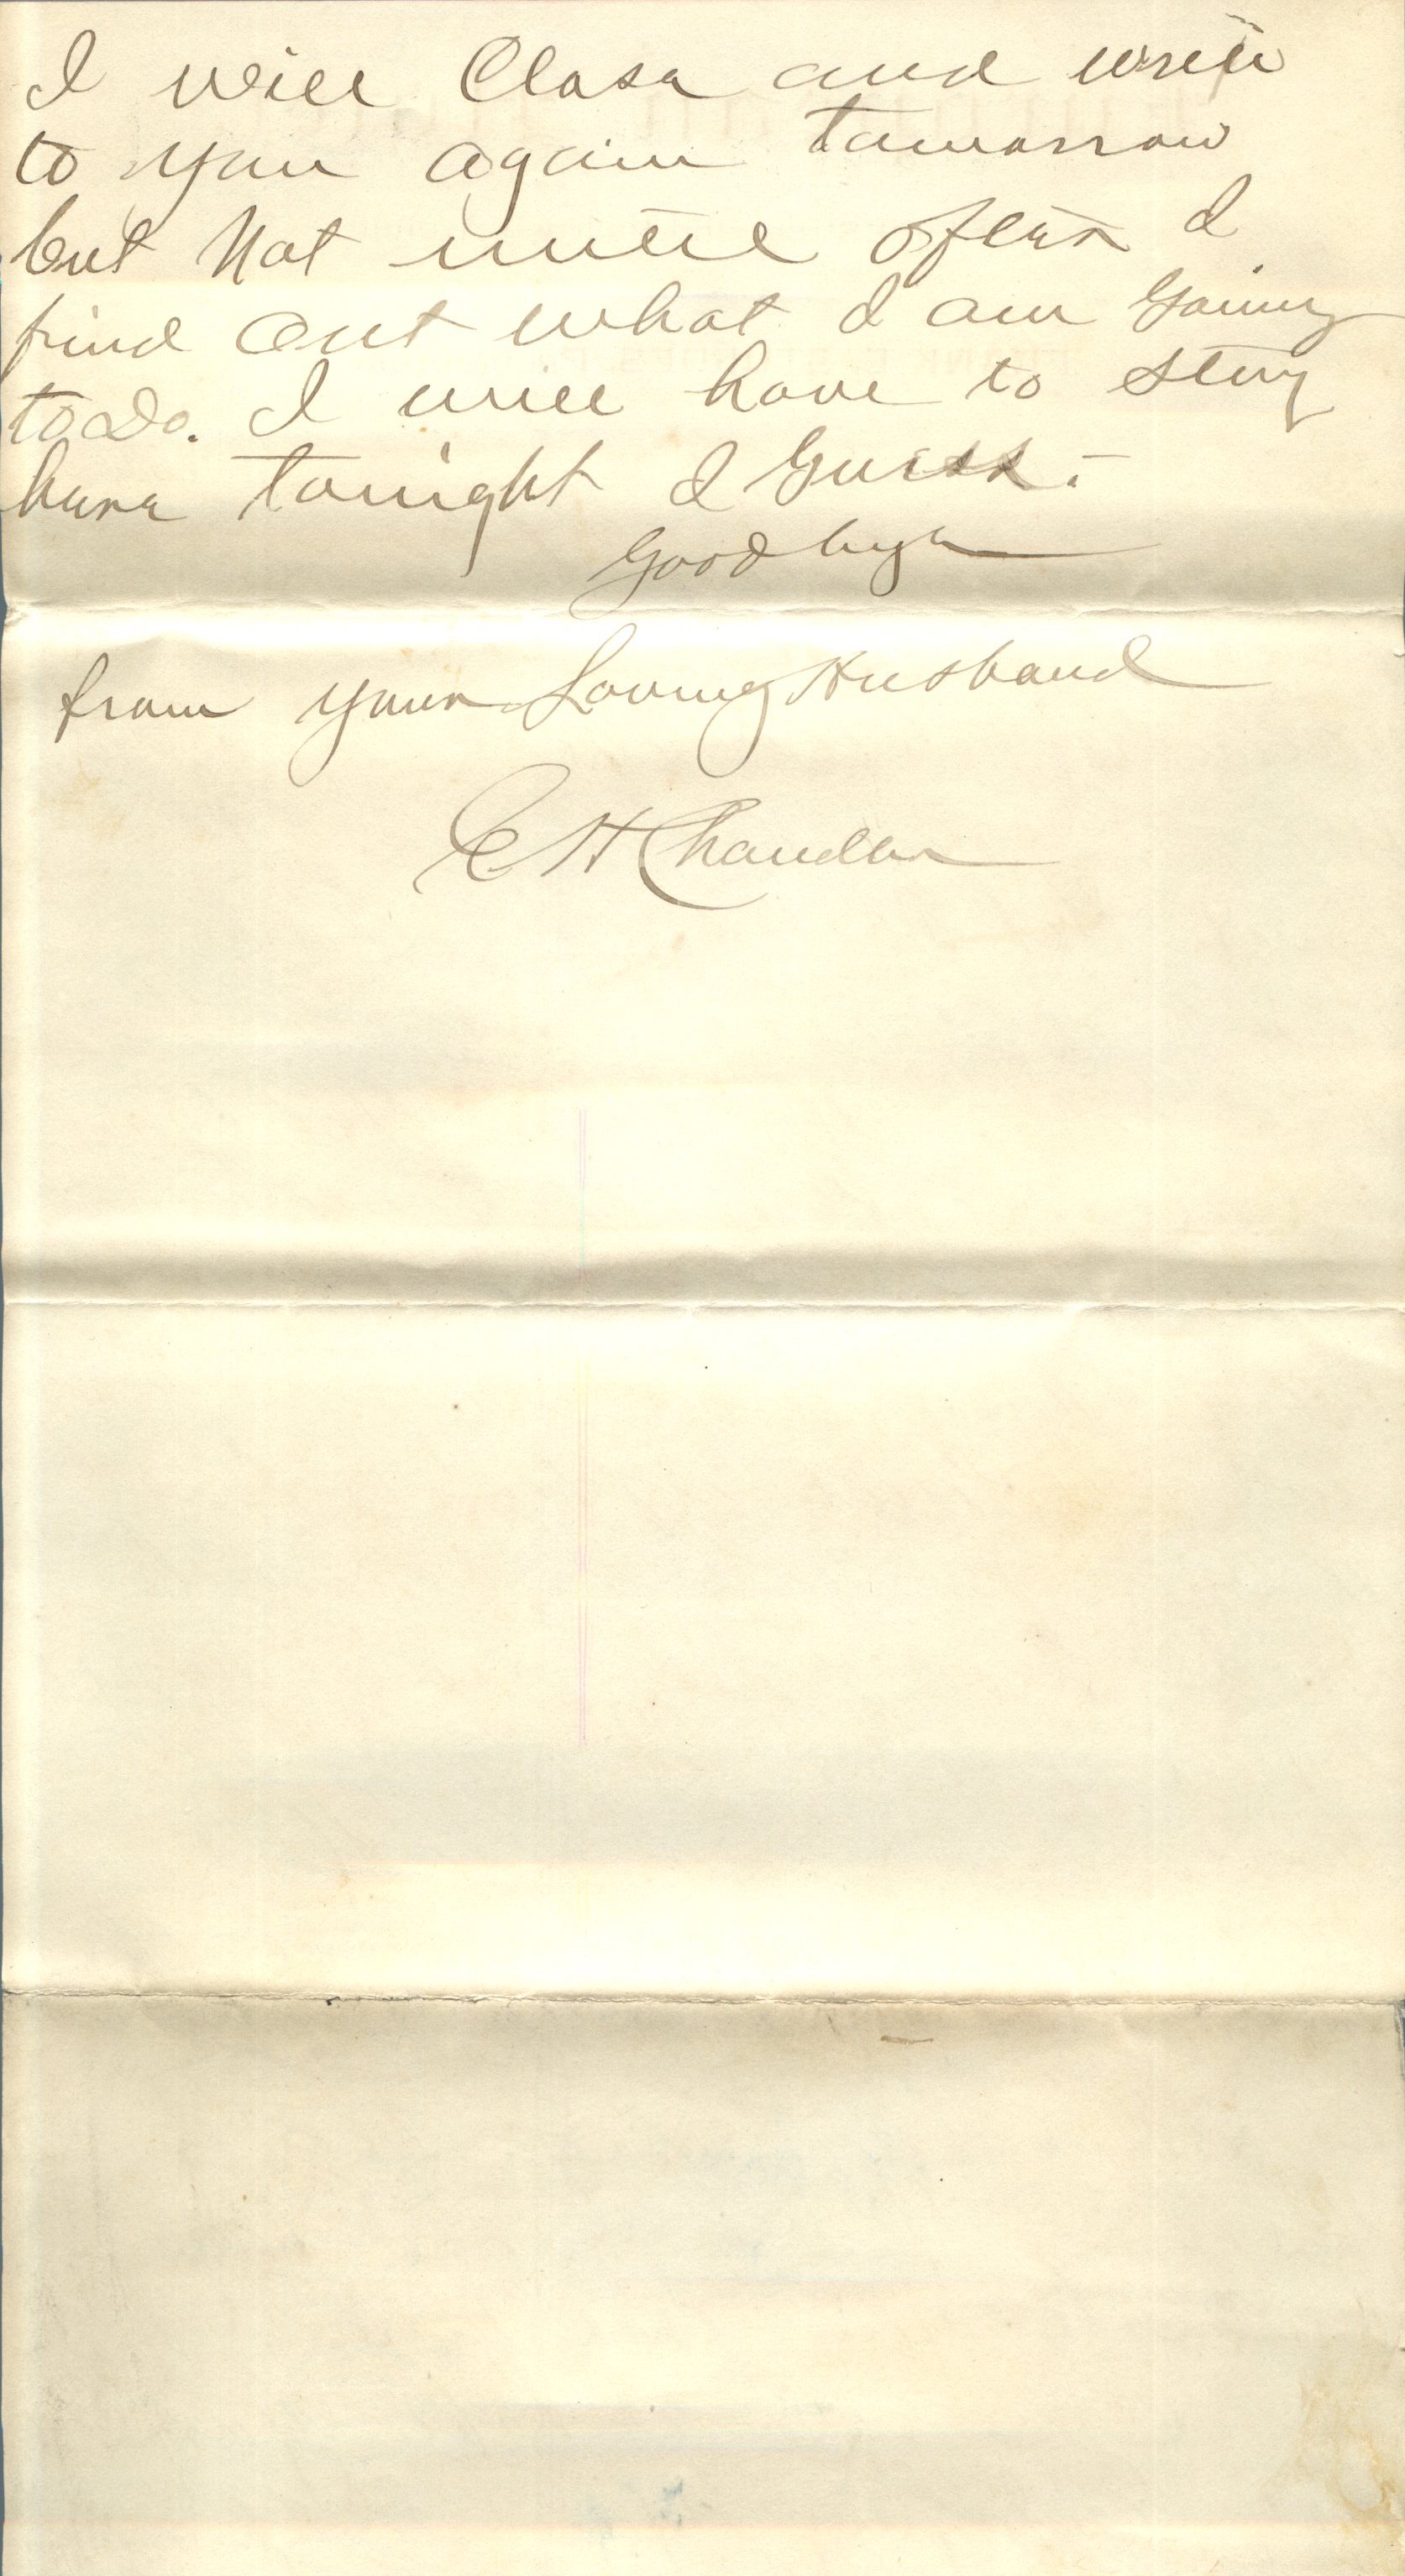 I will Close and write
to you again tomorrow
but Not untill after I
find out what I am Going
to Do. I will have to stay
here tonight I Guess.-
Good bye
from your Loving Husband
C H Chandler